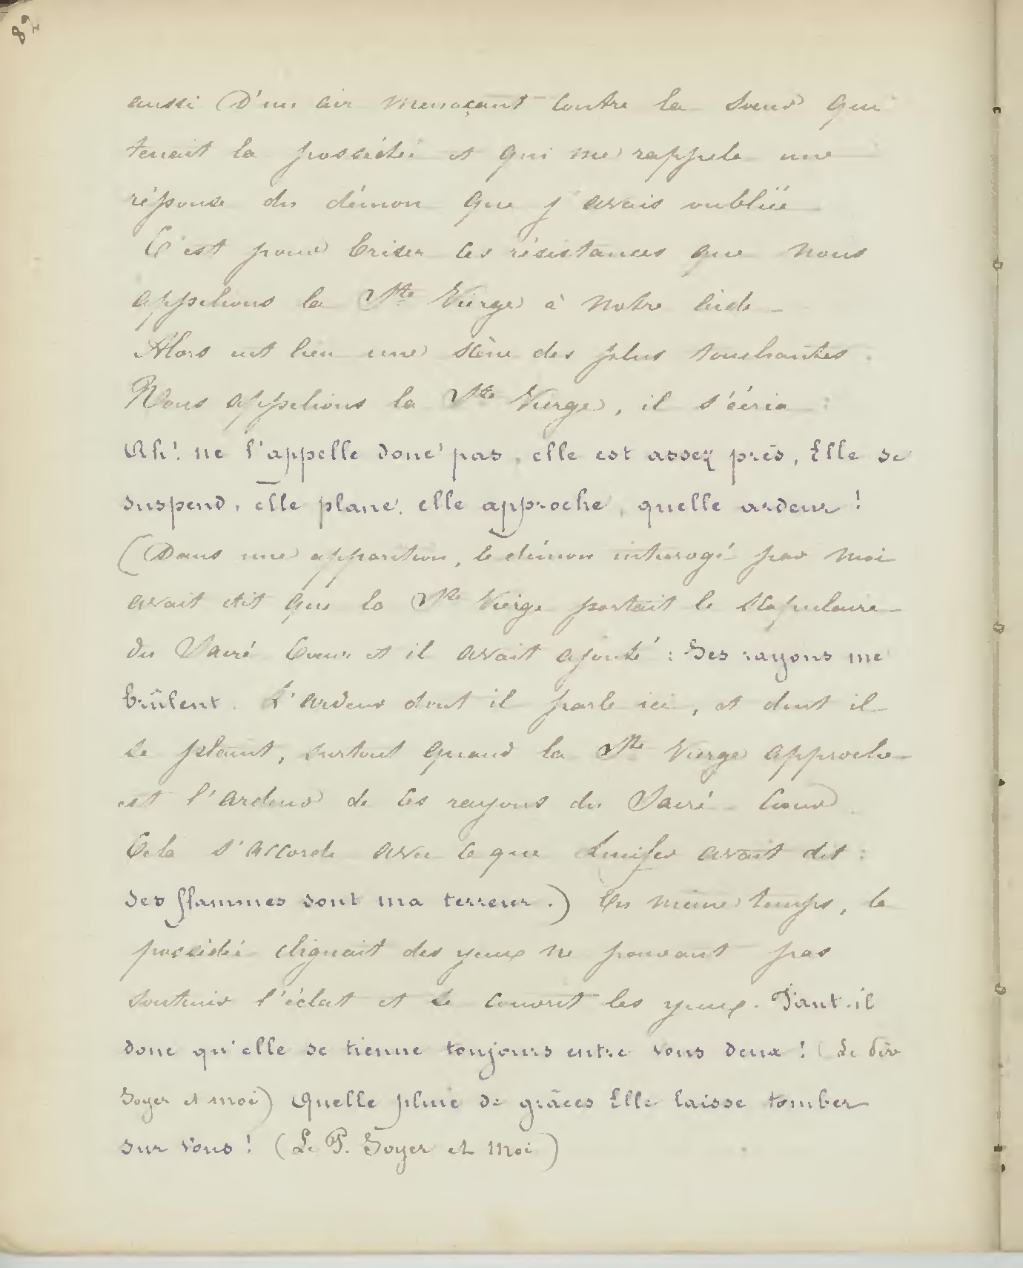 82
aussi (D'un air menaçant contre la Soeur qui
tenait la possédée et qui me rappela une
réponse du démon que j'avais oubliée
C'est pour briser ces résistances que nous
appelions la Ste Vierge à notre aide _
Alors eut lieu une scène des plus touchantes.
Nous appelions la Ste Vierge, il s'écria :
Ah! ne l'appelle donc pas, elle est assez près, Elle se
suspend, elle plane, elle approche, quelle ardeur !
(Dans une apparition, le démon interrogé par moi
avait dit que la Ste Vierge portait le Scapulaire
du Sacré Coeur et il avait ajouté : Ses rayons me
brûlent. L'ardeur dont il parle ici, et dont il
se plaint, surtout quand la Ste Vierge approche
est l'ardeur de ces rayons du Sacré-Coeur.
Cela s'accorde avec ce que Lucifer avait dit :
ses flammes sont ma terreur.) En même temps, la
possédée clignait des yeux ne pouvant pas
soutenir l'éclat et se couvrit les yeux. Faut-il
donc qu'elle se tienne toujours entre vous deux ! (Le Père
Soyer et moi) Quelle pluie de grâces Elle laisse tomber
sur vous ! (Le P. Soyer et moi)